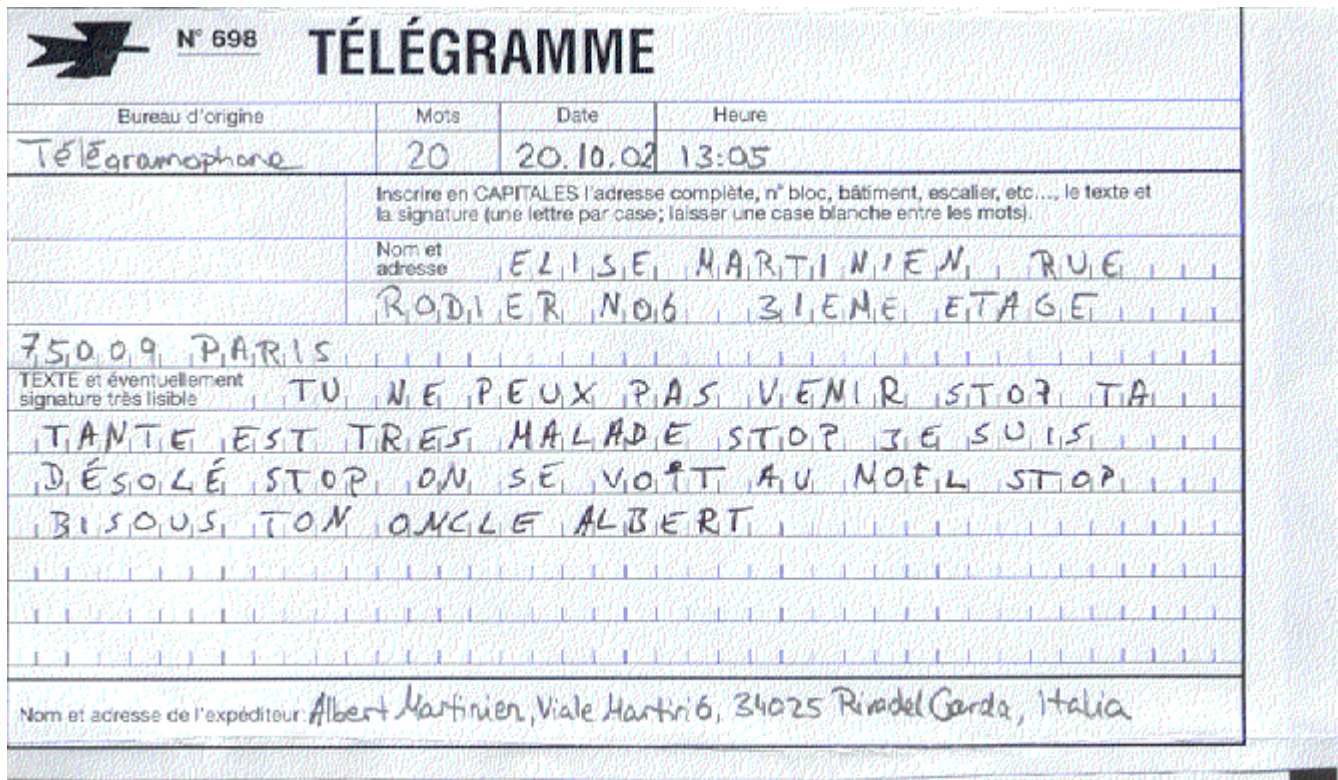 N° 698 TÉLÉGRAMME
Bureau d'origine Mots Date Heure
Télégramophone 20 20.10.02 13:05
Inscrire en CAPITALES l'adresse complète, n° bloc, bâtiment, escalier, etc..., le texte et
la signature (une lettre par case; laisser une case blanche entre les mots).
Nom et
adresse ELISE MARTINIEN RUE
RODIER NO6 3IEME ETAGE
75009 PARIS
TEXTE et éventuellement
signature très lisible TU NE PEUX PAS VENIR STOP TA
TANTE EST TRES MALADE STOP JE SUIS
DÉSOLÉ STOP ON SE VOIT AU NOEL STOP
BISOUS TON ONCLE ALBERT
Nom et adresse de l'expéditeur: Albert Martinien, Viale Martiri 6, 34025 Riva del Garda, Italia